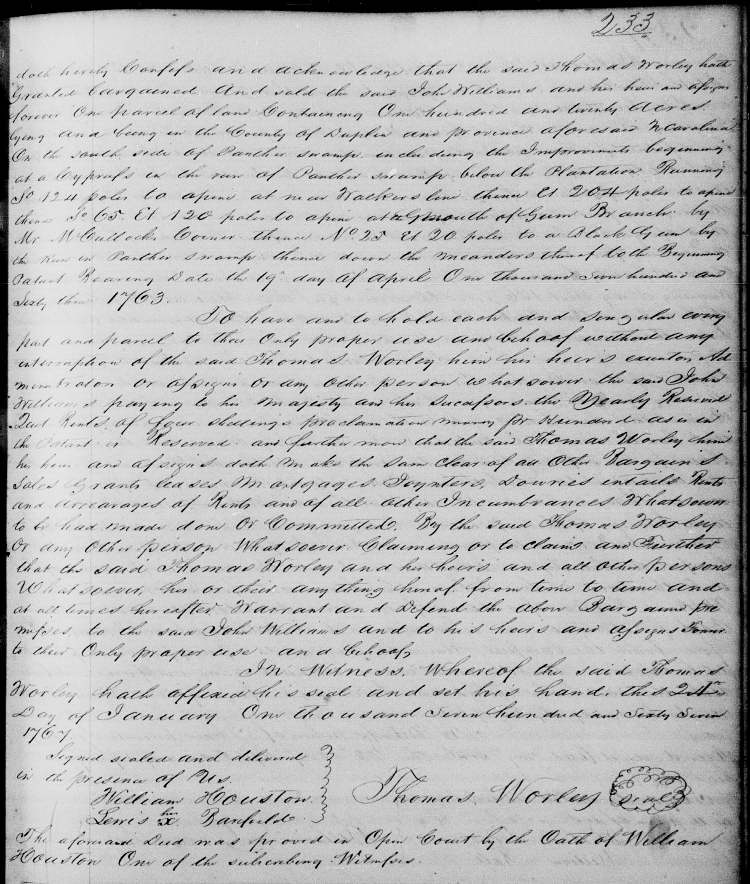 233
doth hereby Confess and acknowledge that the said Thomas Worley hath
Granted bargained and sold the said John Williams and his heirs and assigns
forever One parcel of land Containing One hundred and twenty Acres.
lying and being in the County of Duplin and province aforesaid N Carolina
On the south side of Panther swamp including the Improvements beginning
at a Cypress in the run of Panther swamp below the Plantation Running
So 124 poles to a pine at near Walkers line thence Et 204 poles to a pine
thence So 65 Et 120 poles to a pine at the Mouth of Gum Branch by
Mr McCullocks Corner thence No 25 Et 20 poles to a Black Gum by
the Run in Panther swamp thence down the meanders thereof to the Beginning
Patent Bearing Date the 19th day of April One thousand Seven hundred and
Sixty three 1763
To have and to hold each and singular every
part and parcel to their Only proper use and behoof without any
interruption of the said Thomas Worley him his heirs executors Ad
ministrators or assigns or any other person whatsoever the said John
Williams paying to his majesty and his Successors the Yearly Reserved
Quit Rents of four shillings proclamation money pr Hundred as is in
the Patent is Reserved and further more that the said Thomas Worley him
his heirs and assigns doth make the same clear of all Other Bargains
Sales Grants leases Mortgages Joynters, Dowries entails Rents
and arrearages of Rents and of all other Incumbrances Whatsoever
to be had made done Or Committed, By the said Thomas Worley
Or any Other person Whatsoever Claiming or to claim and Further
that the said Thomas Worley and his heirs and all other persons
Whatsoever his or their any thing hereof from time to time and
at all times hereafter Warrant and Defend the above Bargained pre
misses to the said John Williams and to his heirs and assigns
to their Only proper use and behoof,
In Witness Whereof the said Thomas
Worley hath affixed his seal and set his hand this 24th
Day of January One thousand Seven hundred and Sixty Seven
1767
Signed sealed and delivered
in the presence of Us.
William Houston
Lewis his x Barfield
Thomas Worley Seal
The aforesaid Deed was proved in Open Court by the Oath of William
Houston One of the subscribing Witnesses.